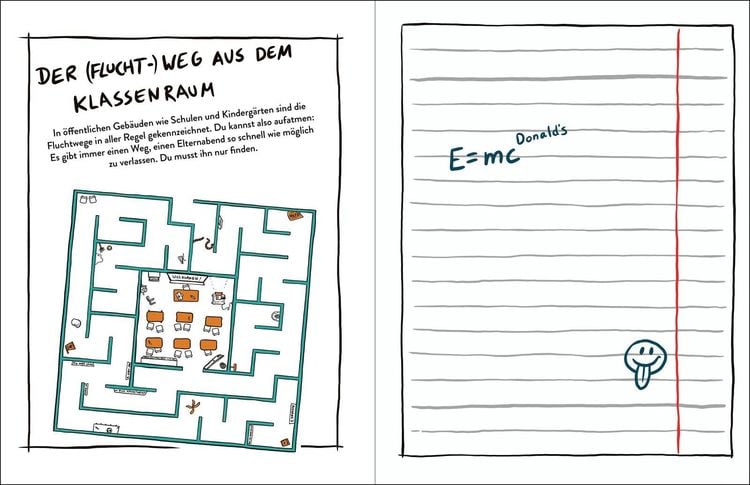 DER (FLUCHT-) WEG AUS DEM
KLASSENRAUM
In öffentlichen Gebäuden wie Schulen und Kindergärten sind die
Fluchtwege in aller Regel gekennzeichnet. Du kannst also aufatmen:
Es gibt immer einen Weg, einen Elternabend so schnell wie möglich
zu verlassen. Du musst ihn nur finden.
E=mc Donald's